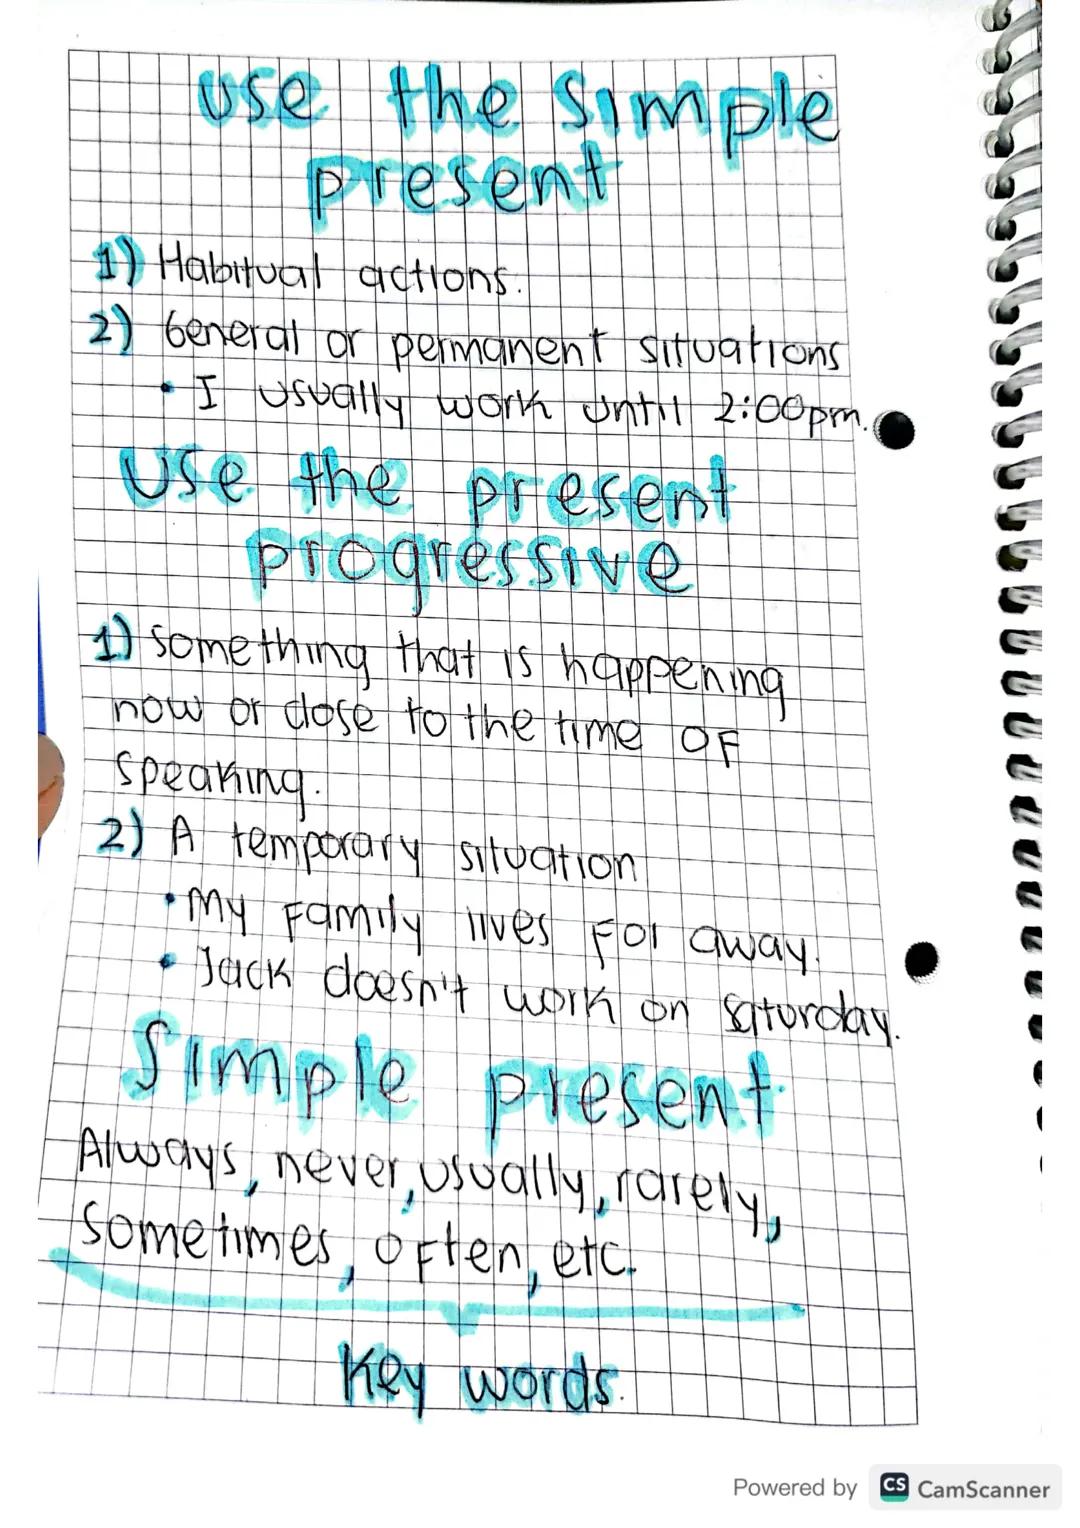 Use the Simple
present
1) Habitual actions.
2) General or permanent situations
• I usually work until 2:00pm.
Use the present
progressive
1) something that is happening
now or close to the time of
speaking.
2) A temporary situation
• My family lives for away.
• Jack doesn't work on saturday.
Simple present
Always, never, usually, rarely,
Sometimes, often, etc.
Key words.
Powered by CS CamScanner